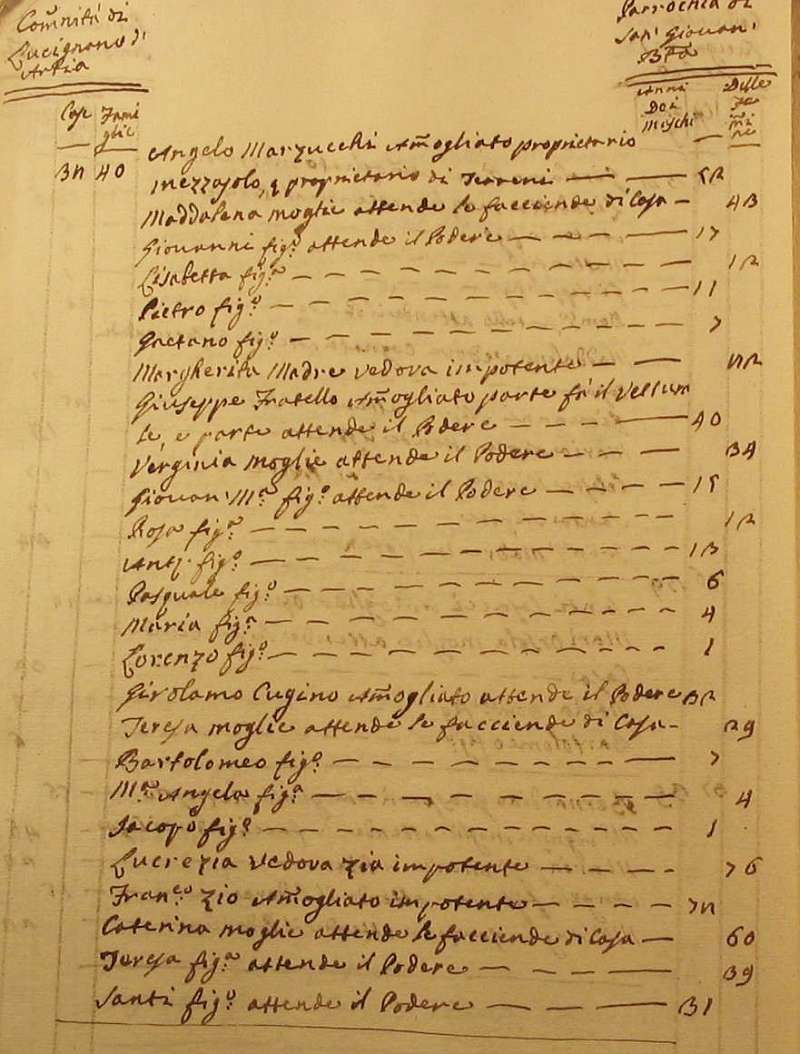 Com̃nità di
Lucignano d'
Arbia
Parrochia di
San' Giovan'
Bt̃a
Case
Fami
glie
Anni
Dei
Maschi
Delle
Fe
mi
ne
40
Angelo Marzucchi Am̃ogliato proprietario —
mezzajolo, e proprietario di Terreni — — — 52
Maddalena moglie attende le facciende di Casa — 43
Giovanni fig.º attende il Podere — — — 17
Lisabetta fig.ª — — — 12
Pietro fig.º — — — 11
Gaetano fig.º — — — 7
Margherita Madre vedova impotente — — 72
Giuseppe Fratello Am̃ogliato parte fà il Vettura
le, e parte attende il Podere — — — 40
Verginia moglie attende il Podere — — — 34
Giovan' M.ª fig.º attende il Podere — — — 15
Rosa fig.ª — — — 12
Ant.º fig.º — — — 13
Pasquale fig.º — — — 6
Maria fig.ª — — — 4
Lorenzo fig.º — — — 1
Girolamo Cugino Am̃ogliato attende il Podere 32
Teresa moglie attende le facciende di Casa — 29
Bartolomeo fig.º — — — 7
M.ª Angela fig.ª — — — 4
Jacopo fig.º — — — 1
Lucrezia vedova zia impotente — — — 76
Fran.co Zio Am̃ogliato impotente — — —
Caterina moglie attende le facciende di Casa — 60
Teresa fig.ª attende il Podere — — — 39
Santi fig.º attende il Podere — — — 31